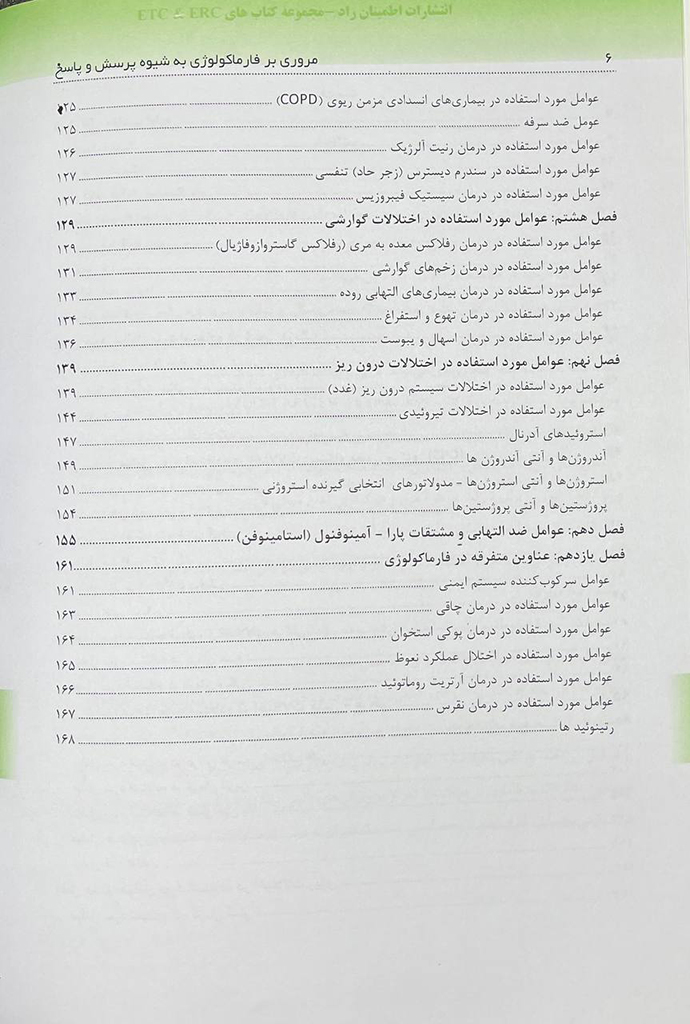 انتشارات اطمینان راد - مجموعه کتاب های ETC & ERC
۶ مروری بر فارماکولوژی به شیوه پرسش و پاسخ
عوامل مورد استفاده در بیماری‌های انسدادی مزمن ریوی (COPD) ۱۲۵
عومل ضد سرفه ۱۲۵
عوامل مورد استفاده در درمان رنیت آلرژیک ۱۲۶
عوامل مورد استفاده در سندرم دیسترس (زجر حاد) تنفسی ۱۲۷
عوامل مورد استفاده در درمان سیستیک فیبروزیس ۱۲۷
فصل هشتم: عوامل مورد استفاده در اختلالات گوارشی ۱۲۹
عوامل مورد استفاده در درمان رفلاکس معده به مری (رفلاکس گاستروازوفاژیال) ۱۲۹
عوامل مورد استفاده در درمان زخم‌های گوارشی ۱۳۱
عوامل مورد استفاده در درمان بیماری‌های التهابی روده ۱۳۳
عوامل مورد استفاده در درمان تهوع و استفراغ ۱۳۴
عوامل مورد استفاده در درمان اسهال و یبوست ۱۳۶
فصل نهم: عوامل مورد استفاده در اختلالات درون ریز ۱۳۹
عوامل مورد استفاده در اختلالات سیستم درون ریز (غدد) ۱۳۹
عوامل مورد استفاده در اختلالات تیروئیدی ۱۴۴
استروئیدهای آدرنال ۱۴۷
آندروژن‌ها و آنتی آندروژن ها ۱۴۹
استروژن‌ها و آنتی استروژن‌ها - مدولاتورهای انتخابی گیرنده استروژنی ۱۵۱
پروژستین‌ها و آنتی پروژستین‌ها ۱۵۴
فصل دهم: عوامل ضد التهابی و مشتقات پارا - آمینوفنول (استامینوفن) ۱۵۵
فصل یازدهم: عناوین متفرقه در فارماکولوژی ۱۶۱
عوامل سرکوب‌کننده سیستم ایمنی ۱۶۱
عوامل مورد استفاده در درمان چاقی ۱۶۳
عوامل مورد استفاده در درمان پوکی استخوان ۱۶۴
عوامل مورد استفاده در اختلال عملکرد نعوظ ۱۶۵
عوامل مورد استفاده در درمان آرتریت روماتوئید ۱۶۶
عوامل مورد استفاده در درمان نقرس ۱۶۷
رتینوئید ها ۱۶۸